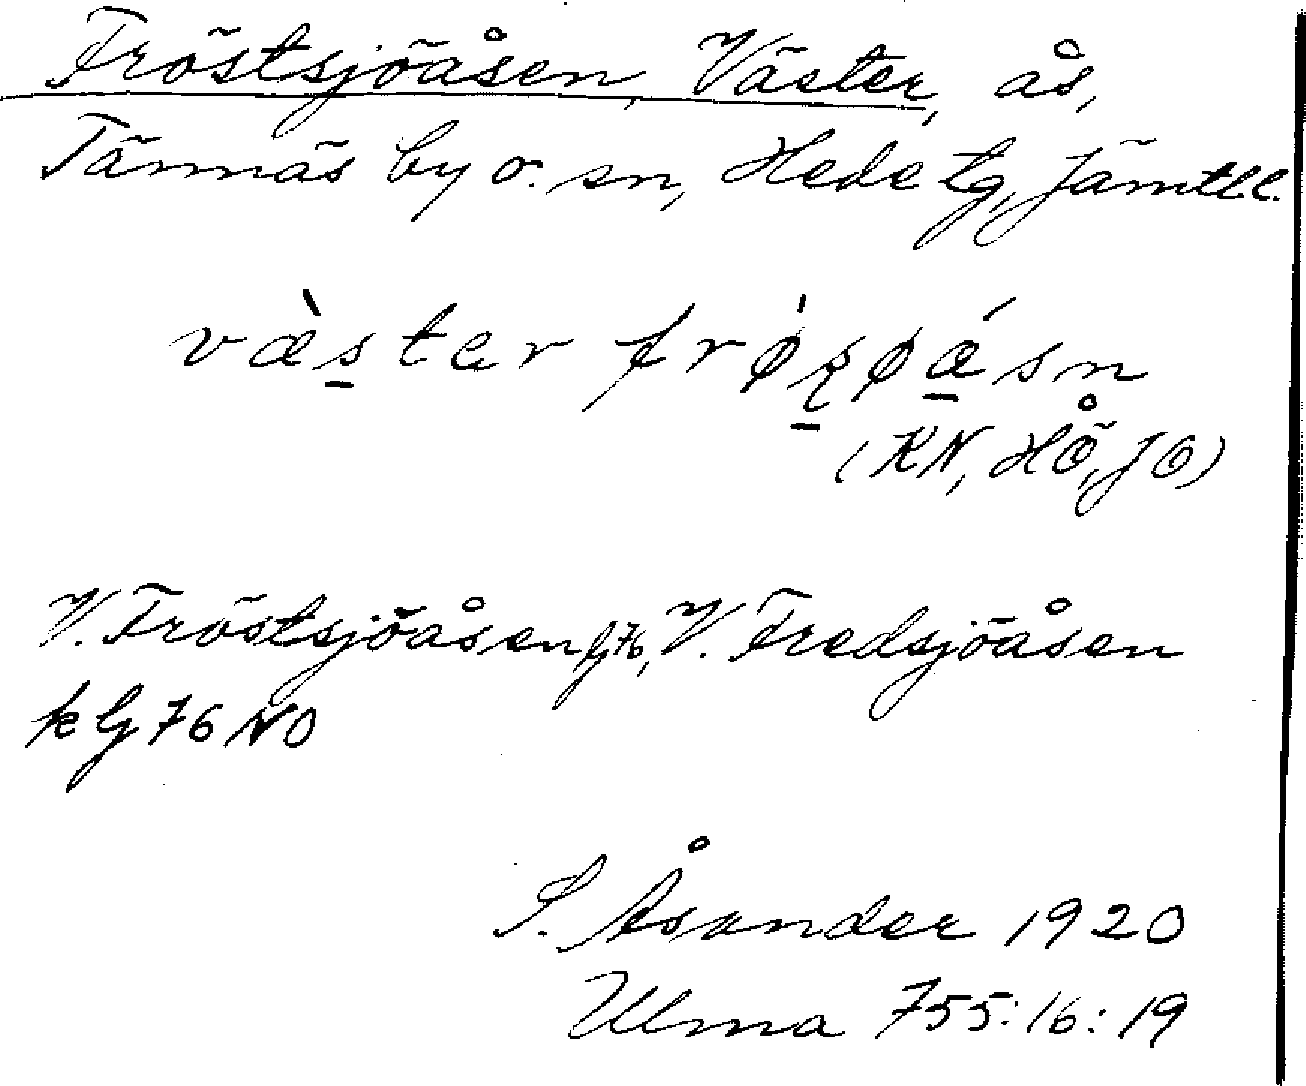 Fröstsjöåsen, Väster, ås,
Tännäs by o. sn, Hede tg, Jämtl.l.
væ̀s̲ter frø̀ʂøǽ̲sn
(KN, HÖ, JÖ)
V. Fröstsjöåsen G76, V. Fredsjöåsen
kG76NO
S. Åsander 1920
Ulma 755:16:19